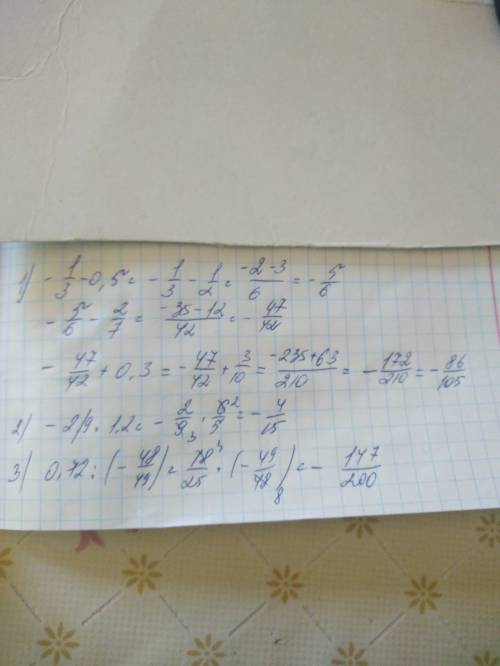 1) - 1/3 - 0,5 = - 1/3 - 1/2 = -2-3/6 = - 5/6
- 5/6 - 2/7 = -35-12/42 = - 47/42
- 47/42 + 0,3 = - 47/42 + 3/10 = -235+63/210 = - 172/210 = - 86/105
2) - 2/9 · 1,2 = - 2/9 3 · 6 2/5 = - 4/15
3) 0,72 : (- 48/49) = 18 3/25 · (- 49/48 8) = - 147/200